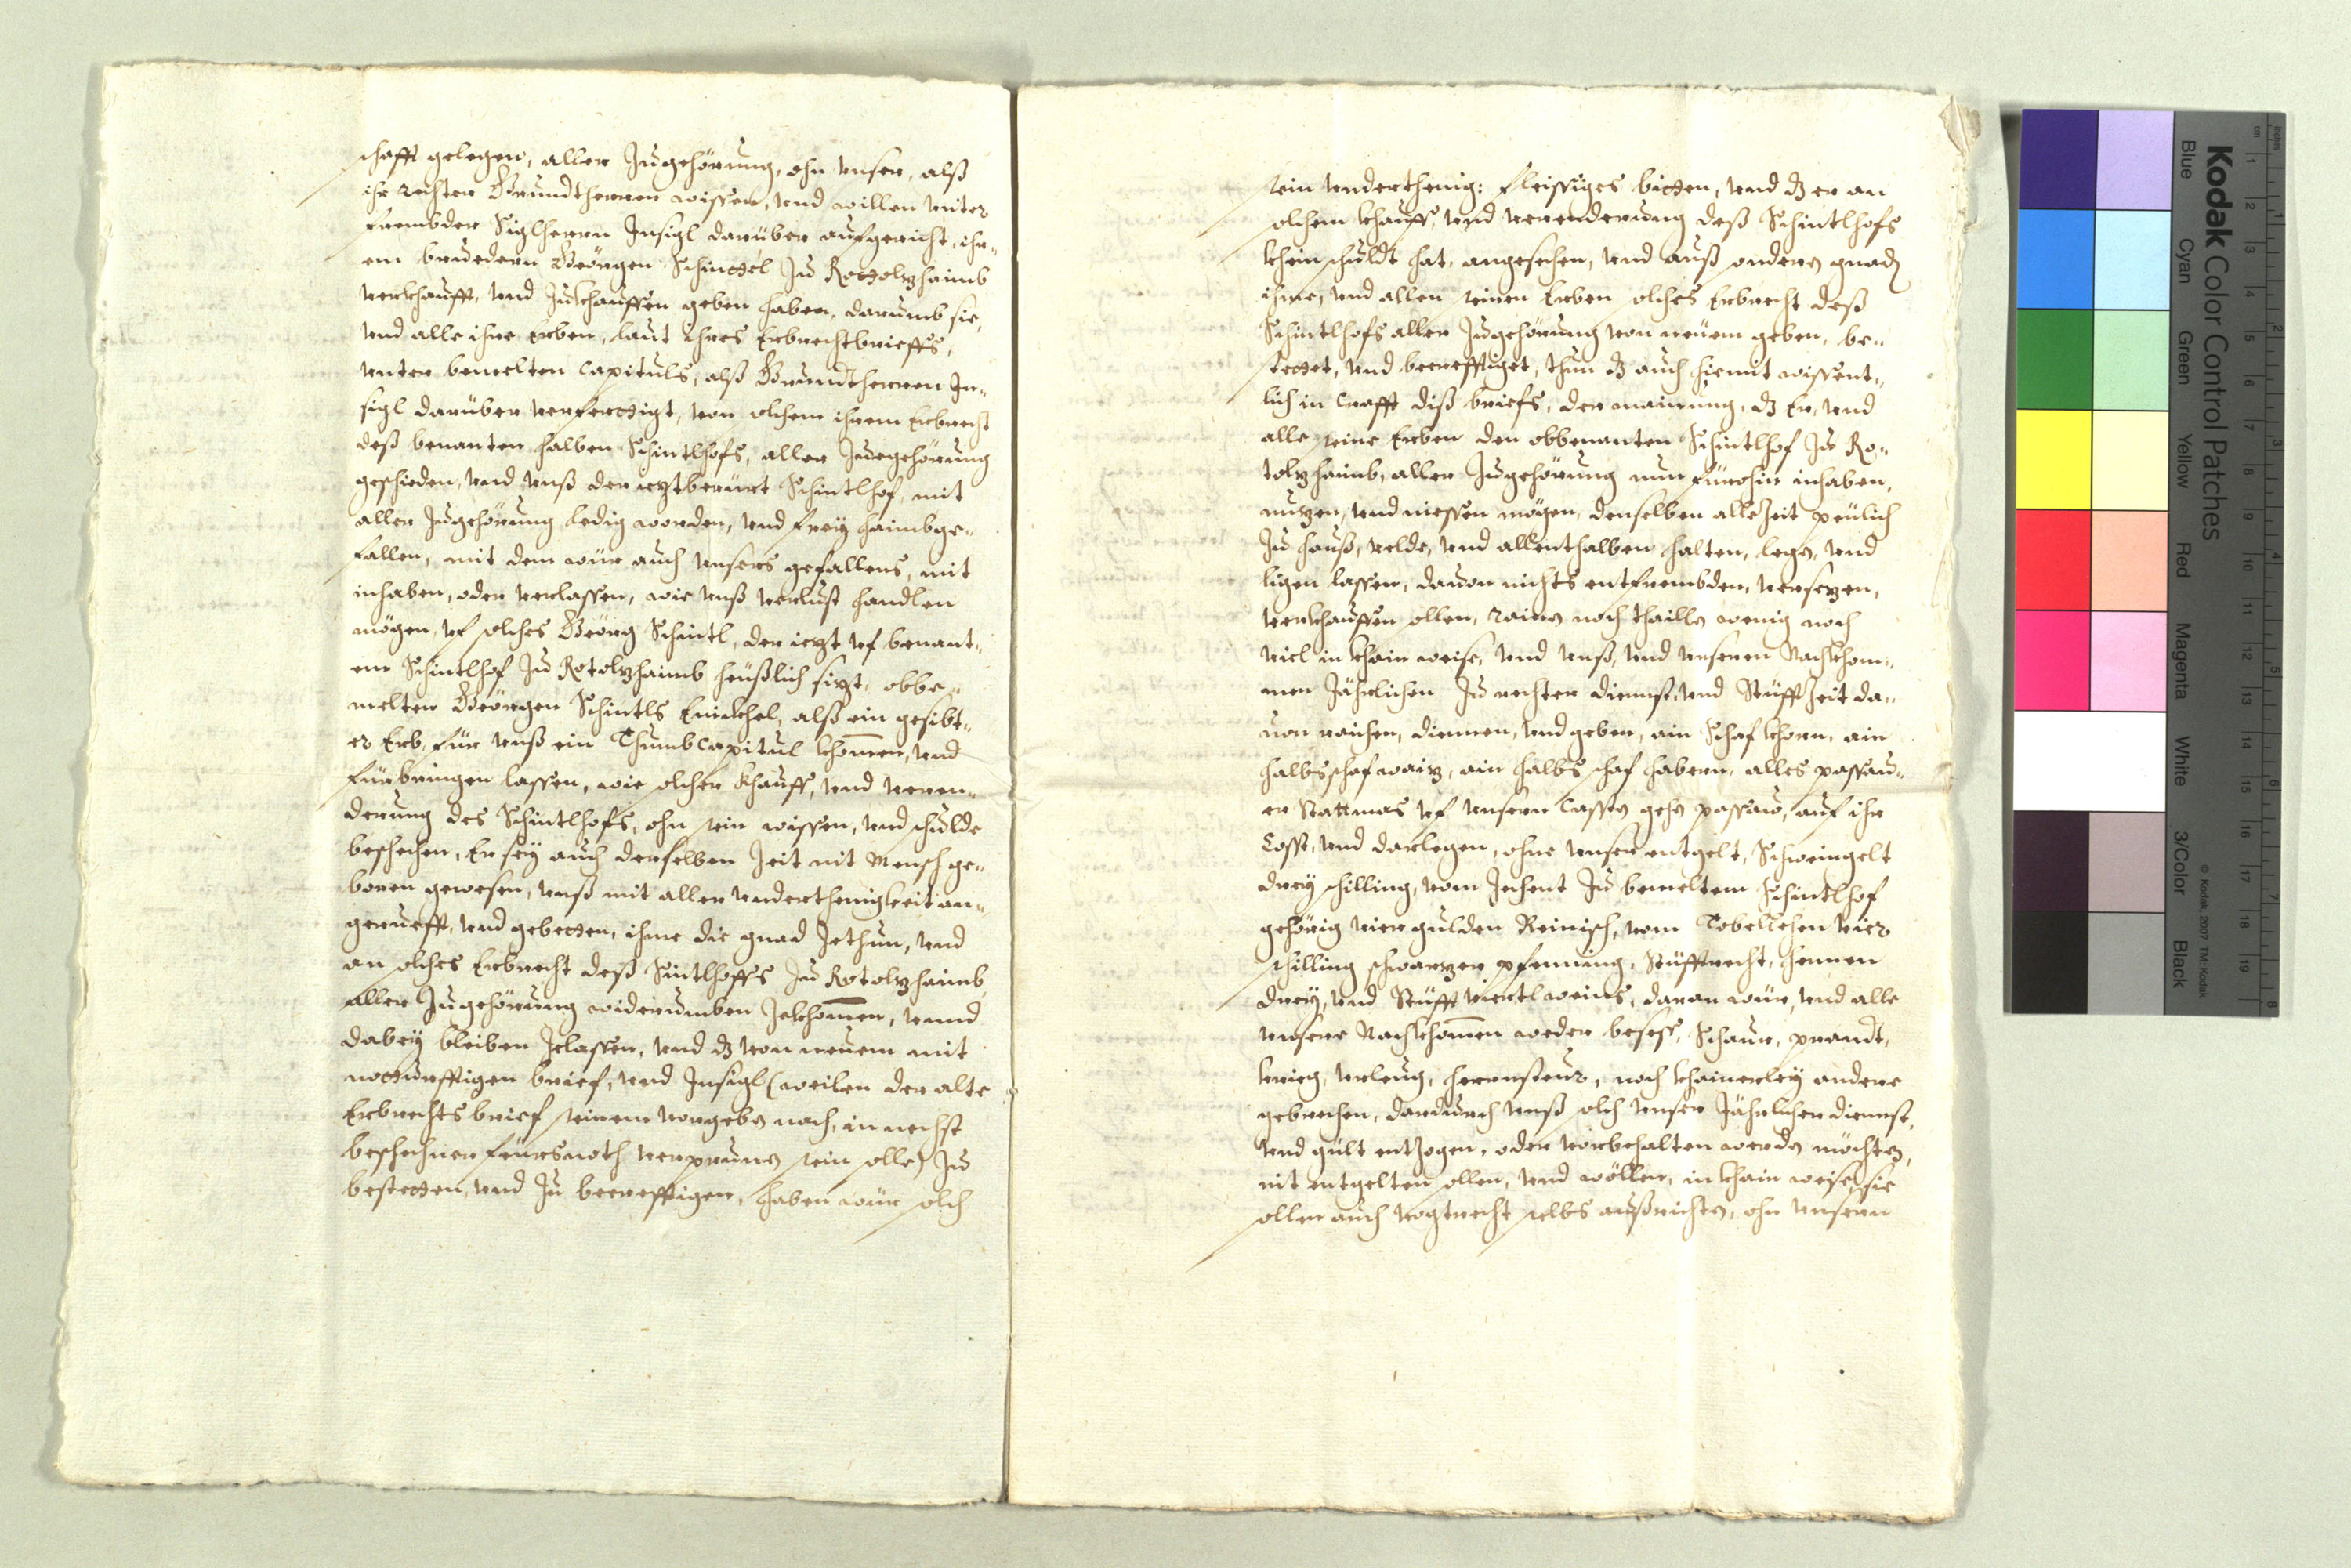 schafft gelegen, aller Zugehörung, ohn unser, alß
ihr rechter Grundtherren wissen, und willen unter
frembder Siglherrn Insigl darüber aufgericht, ihr„
em bruedern Geörgen Schinttel zu Rottolzhaimb
verkhaufft, und Zukhauffen geben haben, darumb sie,
und alle ihre Erben, laut ihres Erbrechtbrieffs,
unter bemelten Capituls, alß Grundtherren In„
sigl darüber verferttigt, von solchem ihrem Erbrecht
deß benanten halben Schintlhofs, aller Zuegehörung
geschieden, und unß der iezt berürt Schintlhof, mit
aller Zugehörung ledig worden, und frey haimbge„
fallen, mit dem wür auch unsers gefallens, mit
inhaben, oder verlassen, wie unß verlust handlen
mögen, uf solches Geörg Schintl, der iezt uf benant„
em Schintlhof zu Rotolzhaimb heüßlich sizt, obbe„
melten Geörgen Schintls Eninkhel, alß ein gesibt„
er Erb, für unß ein Thumbcapitul khom̄en, und
fürbringen lassen, wie solcher khauff, und veren„
derung des Schintlhofs, ohn sein wissen, und schulde
beschechen, Er sey auch derselben Zeit nit Mensch ge„
boren gewesen, unß mit aller underthenigkeit an„
geruefft, und gebetten, ihme die gnad Zethun, und
an solches Erbrecht deß Sintlhoffs zu Rotolzhaimb,
aller Zugehörung widerumben Zekhom̄en, unnd
dabey bleiben Zelassen, und dz von neuem mit
notturfftigen brief, und Insigl (weilen der alte
Erbrechtsbrief seinem vorgeben nach, in nechst
beschechner feürsnoth verprunen sein solle) zu
bestetten, und zu becrefftigen, haben wür solch
sein underthenig: fleissiges bitten, und dz er an
solchem khauff, und verenderung deß Schintlhofs
khein schuldt hat, angesehen, und auß sondern gnad
ihme, und allen seinen Erben solches Erbrecht deß
Schintlhofs aller Zugehörung von neüem geben, be„
stettet, und becrefftiget, thun dz auch hiemit wissent„
lich in Crafft diß briefs, der mainung, dz Er, und
alle seine Erben den obbenanten Schintlhof zu Ro„
tolzhaimb, aller Zugehörung nun fürohin inhaben,
nuzen, und niessen mögen, denselben alle Zeit peülich
zu hauß, velde, und allenthalben halten, legen, und
ligen lassen, dauon nichts entfrembden, versezen,
verkhauffen sollen, rains noch thaills wenig noch
viel in khain weise, und unß, und unseren Nachkhom„
men Jährlichen zu rechter diennst, und Stüfft Zeit da„
uon raichen, diennen, und geben, ain Schaf khorn, ain
halbs schaf waiz, ain halbs schaf habern, alles passau„
er Stattmas uf unsern Casten gehn passaw, auf ihr
Cosst, und darlegen, ohne unser entgelt, Schweingelt
drey schilling, vom Zehent zu bemeltem Schintlhof
gehörig vier gulden Reinisch, vom Tobellehen vier
schilling schwarzer pfenning, Stüfftrecht, hennen
drey, und Stüfft viertl weins, daran wür, und alle
unsere Nachkhom̄en weder besess, Schaur, prandt,
krieg, urleug, herrnsteur, noch khainerley andere
gebrechen, dardurch unß solch unser Jährlicher diennst,
und gült entzogen, oder vorbehalten werden möchten,
nit entgelten sollen, und wöllen, in khain weise, sie
sollen auch vogtrecht selbs außrichten, ohn unsern